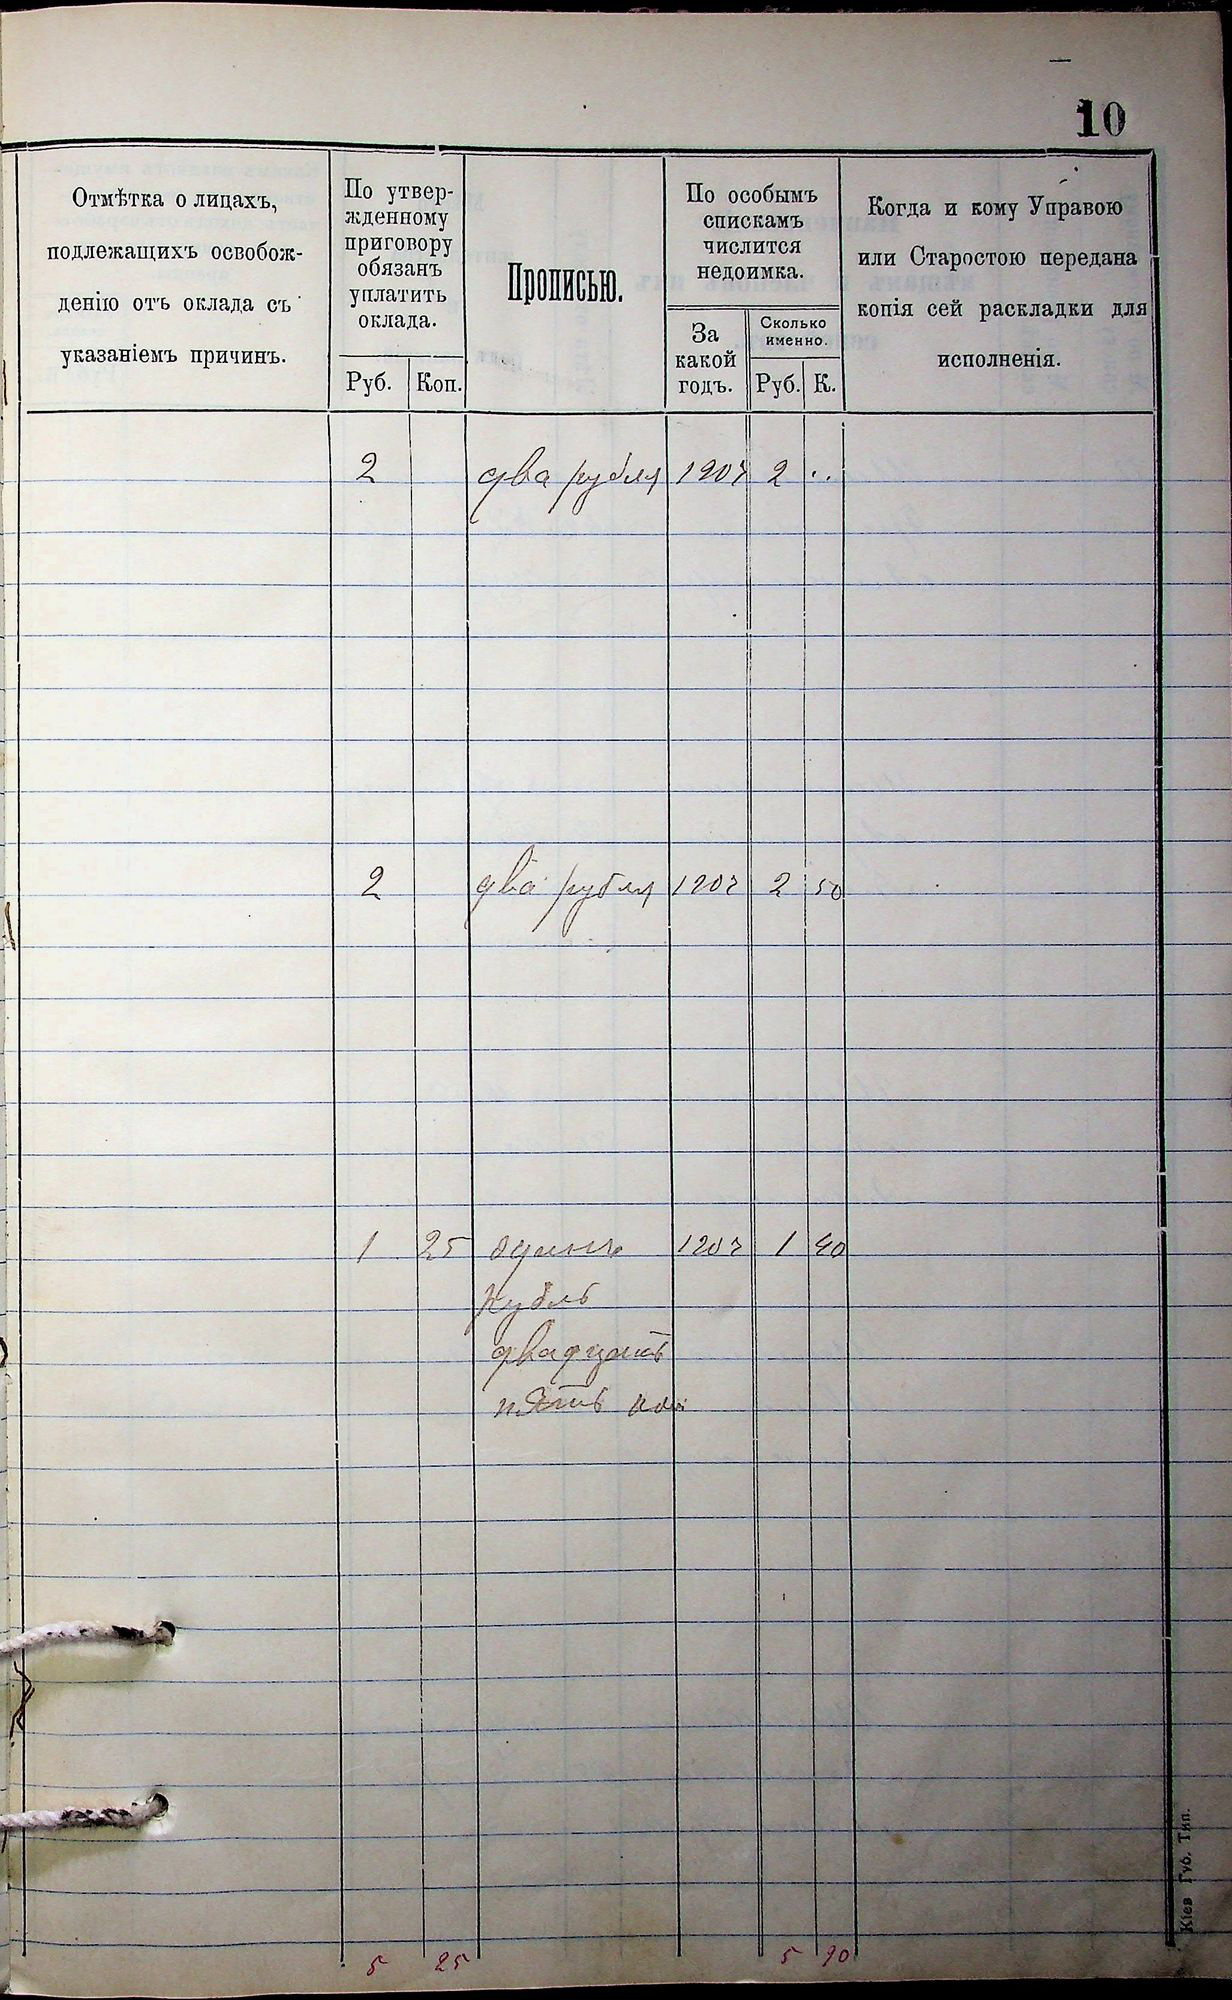 10
Отмѣтка о лицахъ,
подлежащихъ освобож-
денію отъ оклада съ
указаніемъ причинъ.
По утвер-
жденному
приговору
обязанъ
уплатить
оклада.
Руб. Коп.
Прописью.
По особымъ
спискамъ
числится
недоимка.
За
какой
годъ.
Сколько
именно.
Руб. К.
Когда и кому Управою
или Старостою передана
копія сей раскладки для
исполненія.
2 два рубля 1907 2 ..
2 два рубля 1907 2 50
1 25 одинъ 1907 1 40
рубль
двадцать
пять коп
5 25 5 90
Кіев Губ. Тип.